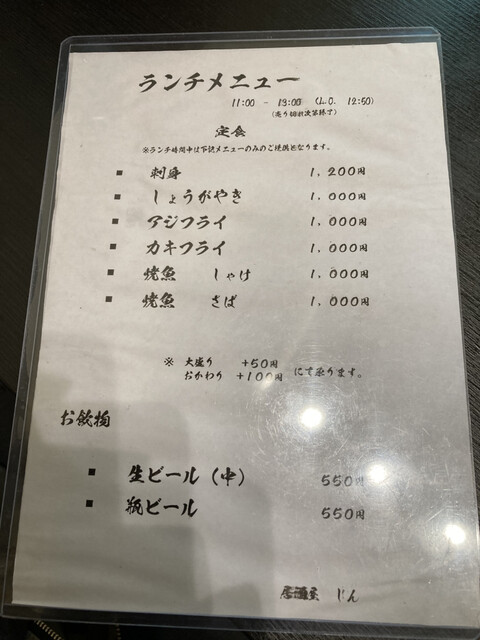 ランチメニュー
11:00 - 13:00 (L.O. 12:50)
(売り切れ次第終了)
定食
※ランチ時間中は下記メニューのみのご提供となります。
■ 刺身 1,200円
■ しょうがやき 1,000円
■ アジフライ 1,000円
■ カキフライ 1,000円
■ 焼魚 しゃけ 1,000円
■ 焼魚 さば 1,000円
※ 大盛り +50円
おかわり +100円 にて承ります。
お飲物
■ 生ビール(中) 550円
■ 瓶ビール 550円
居酒屋 じん